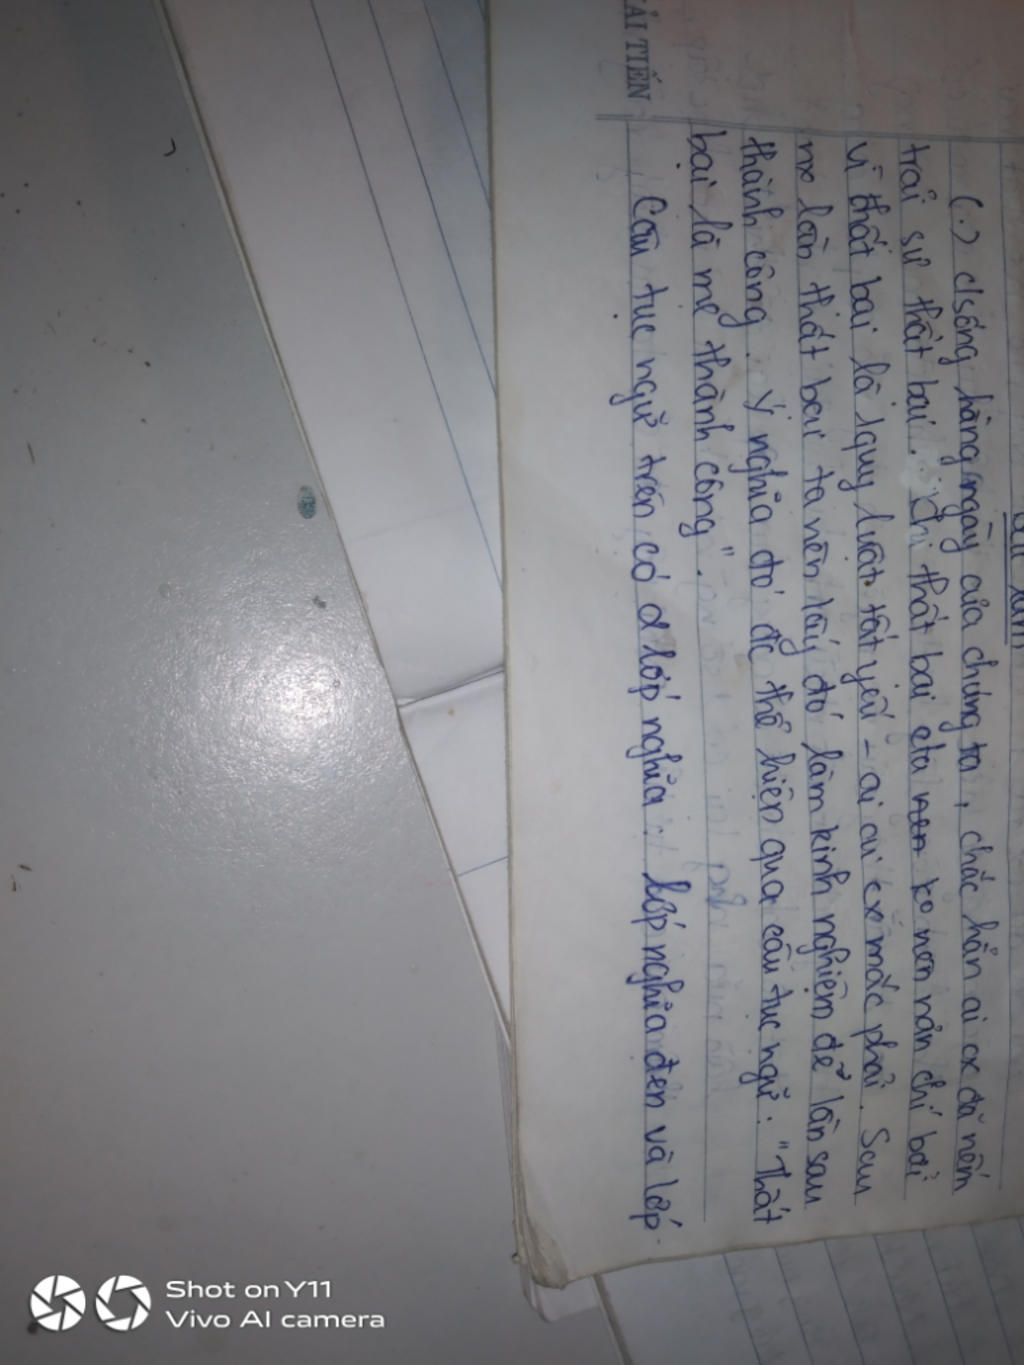 ẢI TIẾN
Bài làm
(.) c/sống hàng ngày của chúng ta, chắc hẳn ai cx đã nếm
trải sự thất bại. Khi thất bại cta nen ko nên nản chí bởi
vì thất bại là quy luật tất yếu - ai ai cx mắc phải. Sau
mx lần thất bại ta nên lấy đó làm kinh nghiệm để lần sau
thành công. Ý nghĩa đó đc thể hiện qua câu tục ngữ: "Thất
bại là mẹ thành công".
Câu tục ngữ trên có d lớp nghĩa: lớp nghĩa đen và lớp
Shot on Y11
Vivo AI camera